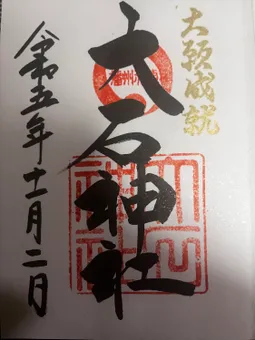 大願成就
大石神社
令和五年十一月二日